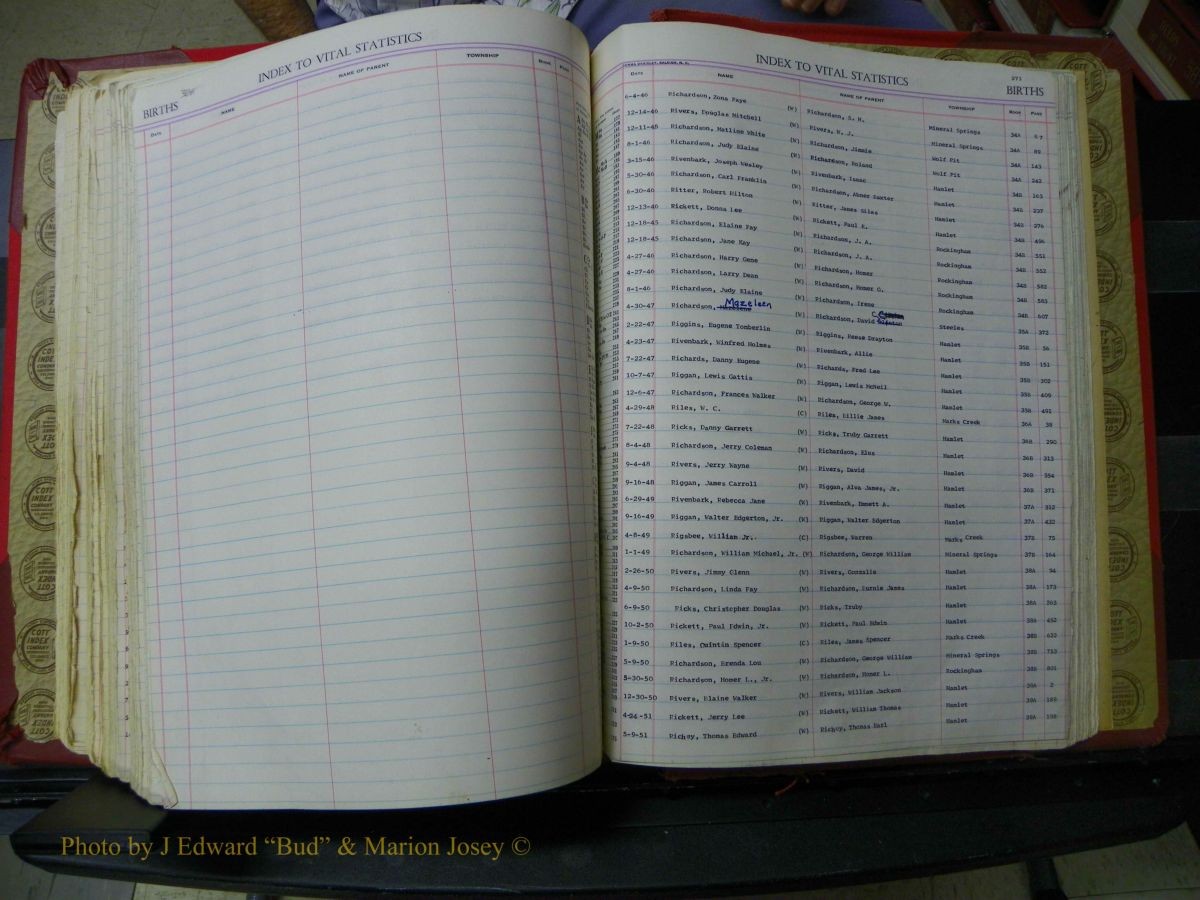 INDEX TO VITAL STATISTICS
BIRTHS
Date NAME NAME OF PARENT TOWNSHIP BOOK PAGE
INDEX TO VITAL STATISTICS 271
BIRTHS
DATE NAME NAME OF PARENT TOWNSHIP BOOK PAGE
6-4-46 Richardson, Zona Faye (W) Richardson, S. H. Mineral Springs 34A 67
12-14-46 Rivers, Douglas Mitchell (W) Rivers, W. J. Mineral Springs 34A 89
12-11-45 Richardson, Matline White (W) Richardson, Jimmie Wolf Pit 34A 143
8-1-46 Richardson, Judy Elaine (W) Richardson, Roland Wolf Pit 34A 242
3-15-46 Rivenbark, Joseph Wesley (W) Rivenbark, Isaac Hamlet 34B 163
5-30-46 Richardson, Carl Franklin (W) Richardson, Abner Baxter Hamlet 34B 237
6-30-46 Ritter, Robert Hilton (W) Ritter, James Giles Hamlet 34B 276
12-13-46 Rickett, Donna Lee (W) Rickett, Paul E. Hamlet 34B 496
12-18-45 Richardson, Elaine Fay (W) Richardson, J. A. Rockingham 34B 551
12-18-45 Richardson, Jane Kay (W) Richardson, J. A. Rockingham 34B 552
4-27-46 Richardson, Harry Gene (W) Richardson, Homer Rockingham 34B 582
4-27-46 Richardson, Larry Dean (W) Richardson, Homer G. Rockingham 34B 583
8-1-46 Richardson, Judy Elaine (W) Richardson, Irene Rockingham 34B 607
4-30-47 Richardson, Mazeleen (W) Richardson, David Steeles 35A 372
2-22-47 Riggins, Eugene Tomberlin (W) Riggins, Reese Drayton Hamlet 35B 56
4-23-47 Rivenbark, Winfred Holmes (W) Rivenbark, Allie Hamlet 35B 151
7-22-47 Richards, Danny Eugene (W) Richards, Fred Lee Hamlet 35B 302
10-7-47 Riggan, Lewis Gattis (W) Riggan, Lewis McNeil Hamlet 35B 409
12-6-47 Richardson, Frances Walker (W) Richardson, George W. Hamlet 35B 491
4-29-48 Riles, W. C. (C) Riles, Lillie James Marks Creek 36A 38
7-22-48 Ricks, Danny Garrett (W) Ricks, Truby Garrett Hamlet 36B 290
8-4-48 Richardson, Jerry Coleman (W) Richardson, Elus Hamlet 36B 313
9-4-48 Rivers, Jerry Wayne (W) Rivers, David Hamlet 36B 354
9-16-48 Riggan, James Carroll (W) Riggan, Alva James, Jr. Hamlet 36B 371
6-29-49 Rivenbark, Rebecca Jane (W) Rivenbark, Emmett A. Hamlet 37A 312
9-16-49 Riggan, Walter Edgerton, Jr. (W) Riggan, Walter Edgerton Hamlet 37A 432
4-8-49 Rigsbee, William Jr. (C) Rigsbee, Warren Marks Creek 37B 75
1-1-49 Richardson, William Michael, Jr. (W) Richardson, George William Mineral Springs 37B 164
2-26-50 Rivers, Jimmy Glenn (W) Rivers, Gonzalie Hamlet 38A 94
4-9-50 Richardson, Linda Fay (W) Richardson, Lurnie James Hamlet 38A 173
6-9-50 Ricks, Christopher Douglas (W) Ricks, Truby Hamlet 38A 263
10-2-50 Rickett, Paul Edwin, Jr. (W) Rickett, Paul Edwin Hamlet 38A 452
1-9-50 Riles, Quintin Spencer (C) Riles, James Spencer Marks Creek 38B 622
5-9-50 Richardson, Brenda Lou (W) Richardson, George William Mineral Springs 38B 713
5-30-50 Richardson, Homer L., Jr. (W) Richardson, Homer L. Rockingham 38B 801
12-30-50 Rivers, Elaine Walker (W) Rivers, William Jackson Hamlet 39A 2
4-24-51 Rickett, Jerry Lee (W) Rickett, William Thomas Hamlet 39A 189
5-9-51 Richey, Thomas Edward (W) Richey, Thomas Earl Hamlet 39A 198
Photo by J Edward “Bud” & Marion Josey ©